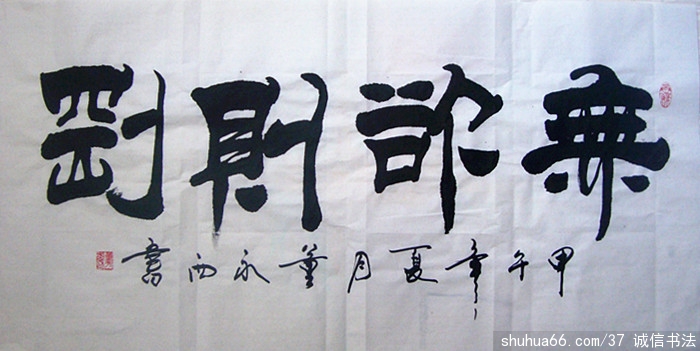 無欲則剛
甲午年夏月董永西書
shuhua66.com/37 诚信书法